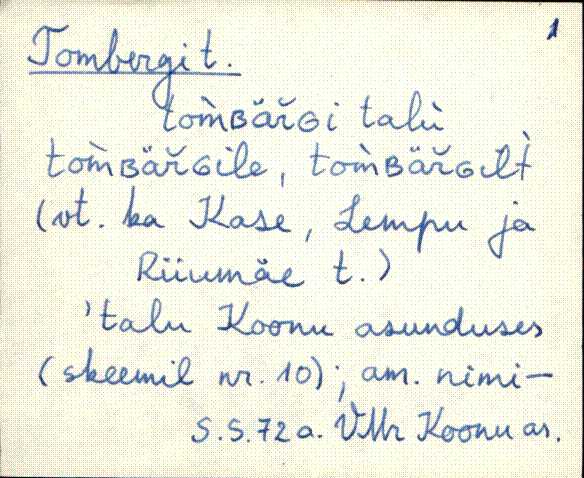 1
Tombergi t.
tom̀ʙäŕɢi talù
tom̀ʙäŕɢile, tom̀ʙäŕɢilt̀
(vt. ka Kase, Lempu ja
Riiumäe t.)
'talu Koonu asunduses
(skeemil nr. 10); am. nimi-
S.S. 72 a. VMr Koonu as.